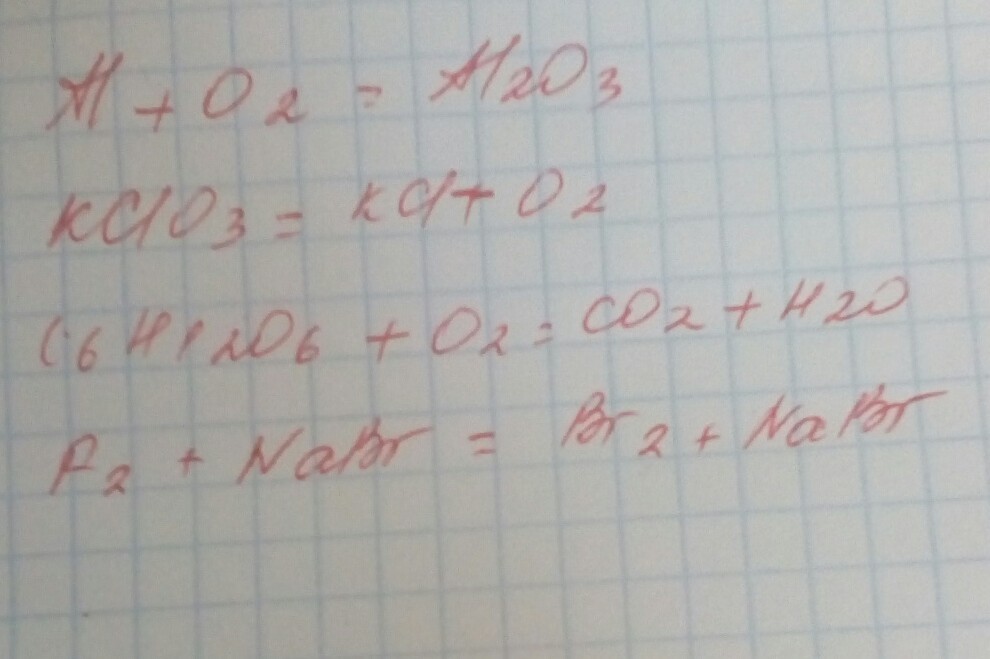 Al + O2 = Al2O3
KClO3 = KCl + O2
C6H12O6 + O2 = CO2 + H2O
F2 + NaBr = Br2 + NaBr